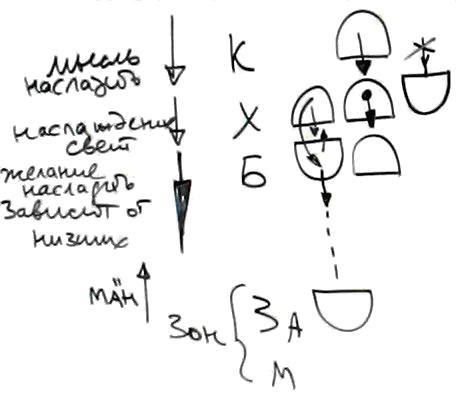 мысль
насладить
К
наслаждение
свет
Х
желание
насладить
Зависит от
низших
Б
МАН
Зон { З А
М